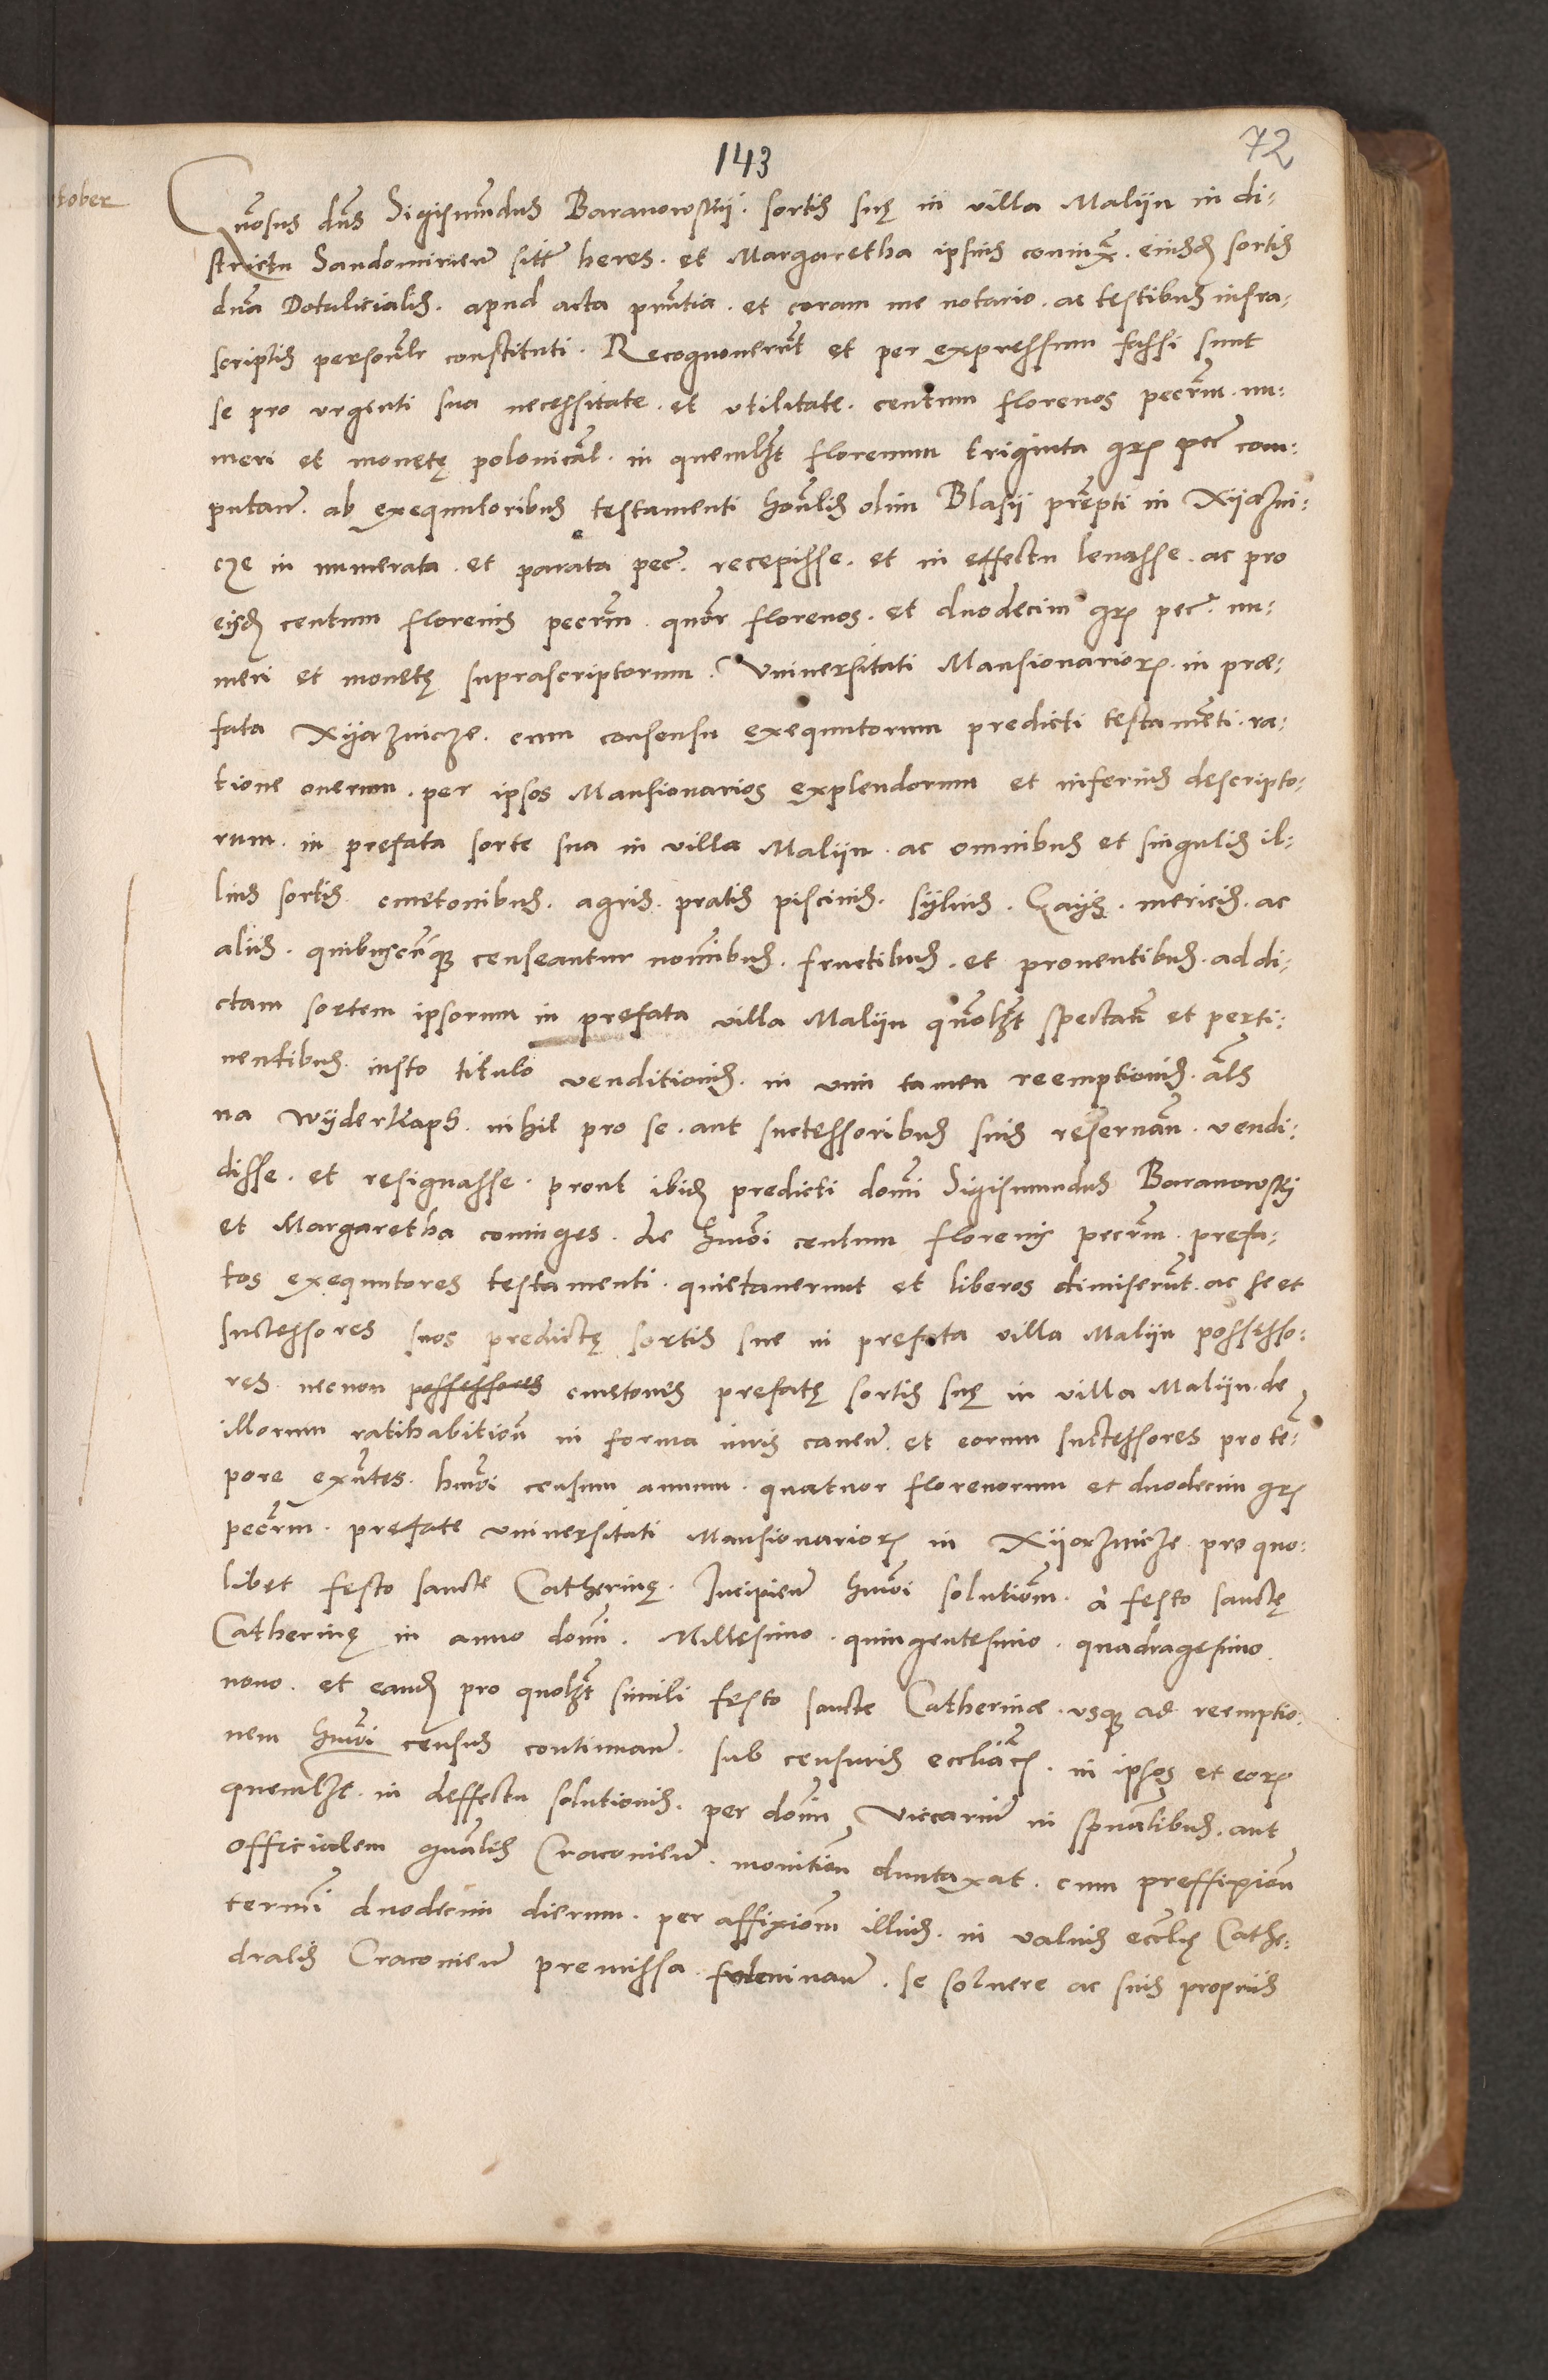 143
72
tober
Gnosus dns Sigismundus Baranowskij. sortis suę in villa Malijn in di-
strictu Sandomirien sitt heres. et Margaretha ipsius coniux. eiusd sortis
dna Dotalicialis. apud acta pntia. et coram me notario. ac testibus infra-
scriptis personalr constituti. Recognouernt et per expressum fassi sunt
se pro vrgenti sua necessitate. et vtilitate. centum florenos pecrm. nu-
meri et monetę polonical. in quemlzt florenum triginta grs pec com-
putan. ab exequutoribus testamenti honlis olim Blasij prepti in Xijazni-
cze in numerata. et parata pec. recepisse. et in effectu leuasse. ac pro
eisd centum florenis pecrm. quor florenos. et duodecim grs pec. nu-
meri et monetę suprascriptorum. Vniuersitati Mansionariors. in præ-
fata Xijaznicze. cum consensu exequutorum predicti testamenti. ra-
tione onerum. per ipsos Mansionarios explendorum et inferius descripto-
rum. in prefata sorte sua in villa Malijn. ac omnibus et singulis il-
lius sortis cmetonibus. agris. pratis piscinis. syluis. Gays. mericis. ac
alijs. quibuscunque censeantur nominibus. fructibus. et prouentibus. ad di-
ctam sortem ipsorum in prefata villa Malijn quolzt spectan et perti-
nentibus iusto titulo venditionis. in vim tamen reemptionis. als
na wijderkaph. nihil pro se. aut successoribus suis reseruan. vendi-
disse. et resignasse. prout ibid predicti domi Sigismundus Baranowskij
et Margaretha coniuges. de hmoi centum florenis pecrm. prefa-
tos exequutores testamenti. quietauerunt et liberos dimisernt. ac se et
successores suos predictę sortis sue in prefata villa Malijn possesso-
res. necnon possessores cmetones prefatę sortis suę in villa Malijn. de
illorum ratihabition in forma iuris cauen. et eorum successores pro te-
pore exntes. hmoi censum annum. quatuor florenorum et duodecim grs
pecrm. prefate vniuersitati Mansionariors in Xijaznicze pro quo-
libet festo sancte Catherinę. Incipien hmoi solutiom. à festo sanctę
Catherinę in anno domi. Millesimo. quingentesimo. quadragesimo
nono. et eand pro quolzt simili festo sancte Catherinæ. vsque ad reemptio-
nem hmoi census continuan. sub censuris eccliacs. in ipsos et eors
quemlzt. in deffectu solutionis. per domin Viccarium in spualibus. aut
officialem gnalis Cracouien. monition duntaxat. cum preffixion
termni duodecim dierum. per affixiom illius. in valuis ecclię Cathe-
dralis Cracouien premissa fulminan. se soluere ac suis proprijs